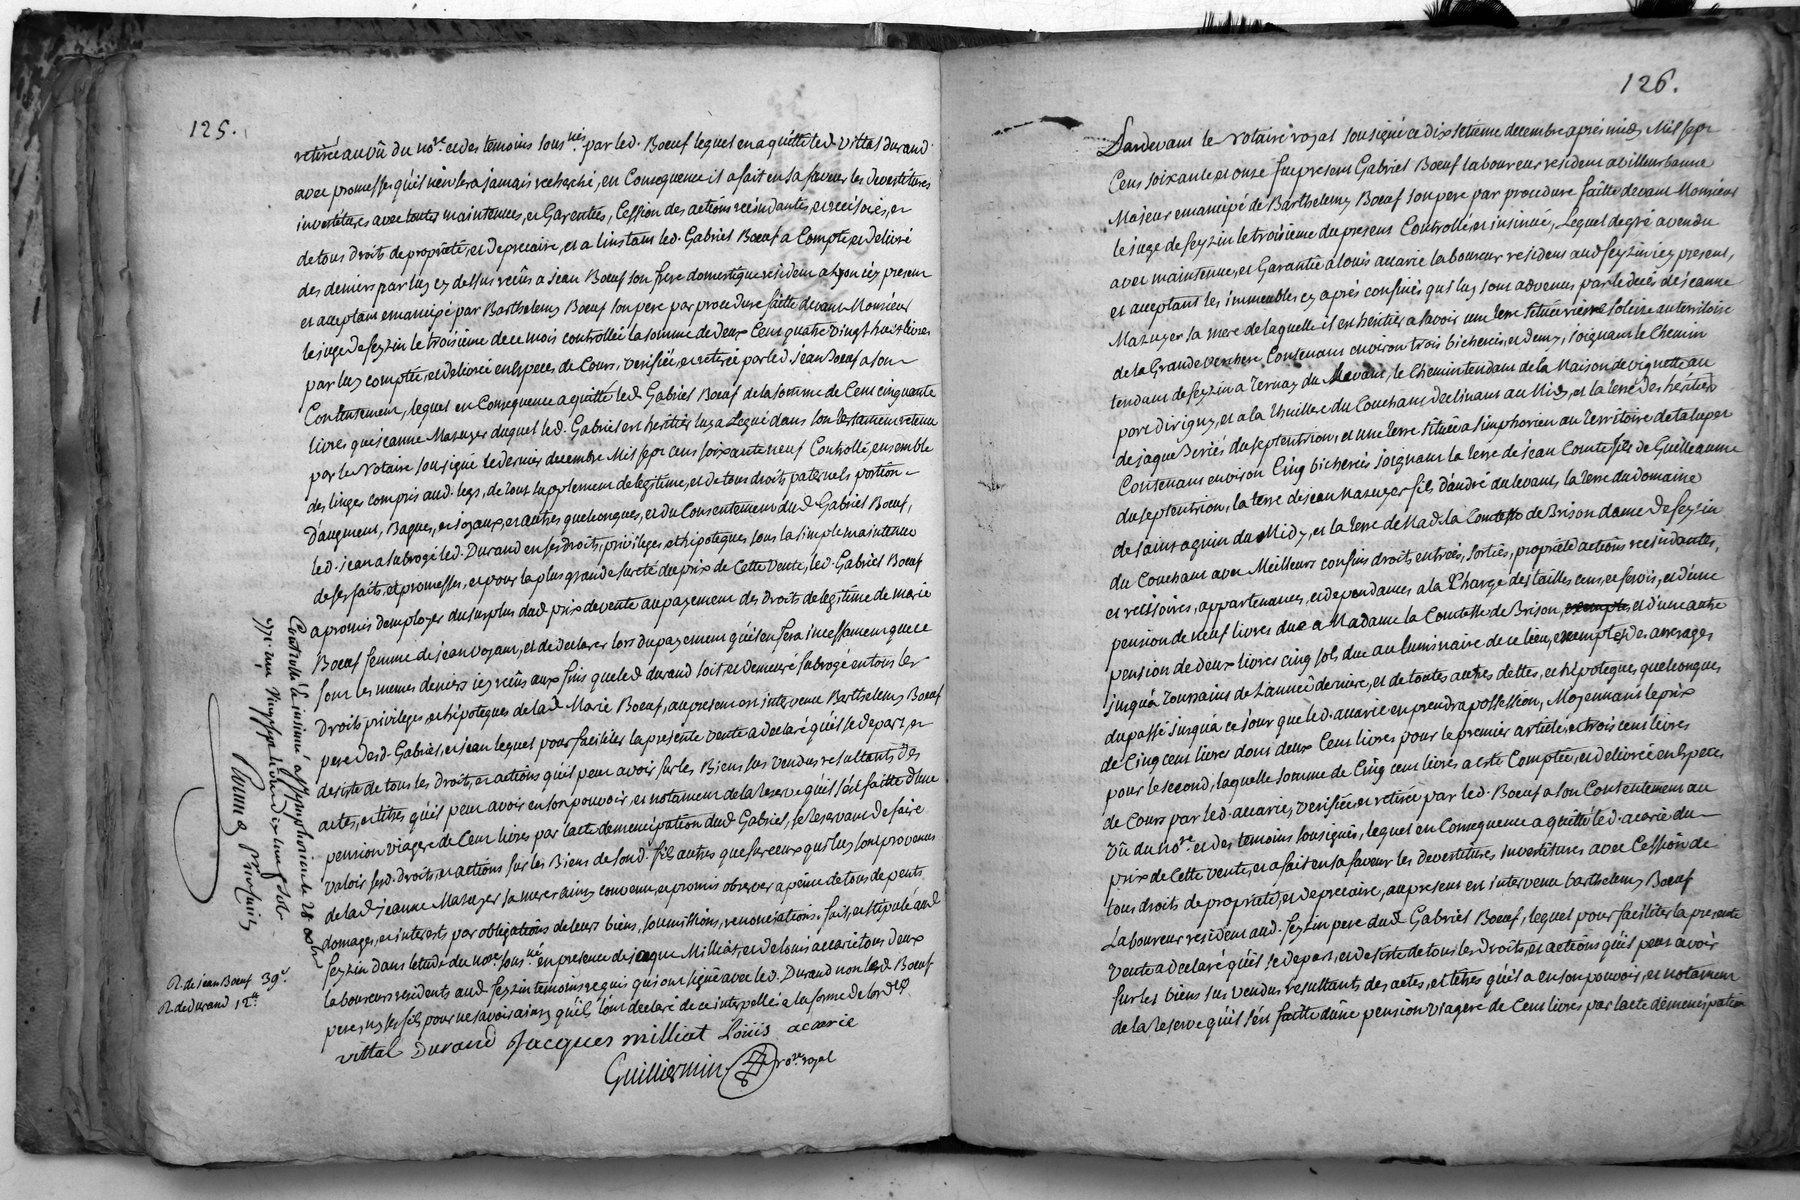 125.
retirée au vû du no.re et des temoins sous.nés par led. Boeuf lequel en a quitté led Vittal durand
avec promesse qu'il n'en sera jamais recherché, en Consequence il a fait en sa faveur les devestitures
investitures avec toutes maintenues, et Garenties, Cession des actions rescindantes, et rescisoires, et
de tous droits de proprieté, et de precaire, et a l'instant led. Gabriel Boeuf a Compté, et delivré
des deniers par luy cy dessus reçûs a jean Boeuf son frere domestique resident a Lyon icy present
et acceptant emancipé par Barthelemy Boeuf son pere par procedure faitte devant Monsieur
le juge de seyzin le troisieme de ce mois controllée la somme de deux Cent quatre vingt huit livres
par luy comptée, et delivrée en Especes de Cours, verifiée, et retirée par led. jean Boeuf a son
Contentement, lequel en Consequence a quitté led. Gabriel Boeuf de la somme de Cent cinquante
livres que jeanne Mazuyer duquel led. Gabriel est héritier luy a Legué dans son testament retenu
par le Notaire sousigné le dernier decembre Mil sept cens soixante neuf Controllé, ensemble
des linges compris aud. legs, de tout supplement de legitime, et de tous droits paternels portion
d'augment, Bagues, et joyaux, et autres quelconques, et du Consentement dud. Gabriel Boeuf,
led. jean a subrogé led. Durand en ses droits, privileges, et hipoteques sous la simple maintenue
de ses faits, et promesses, et pour la plus grande sureté du prix de Cette Vente, led. Gabriel Boeuf
a promis d'employer du surplus dud. prix de vente au payement des droits de legitime de marie
Boeuf femme de jean voyant, et de declarer lors du payement qu'il en fera incessament que ce
sont les memes deniers icy reçûs aux fins que led durand soit et demeure subrogé en tous les
Droits privileges, et hipoteques de lad. Marie Boeuf, au present est intervenu Barthelemy Boeuf
pere desd. Gabriel, et jean lequel pour faciliter la presente vente a declaré qu'il se depart, et
desiste de tous les droits, et actions qu'il peut avoir sur les Biens sus vendus resultants des
actes, et titres qu'il peut avoir en son pouvoir, et notament de la reserve qu'il s'est faitte d'une
pension viagere de Cent livres par l'acte d'emencipation dud Gabriel, se reservant de faire
valoir sesd. droits, et actions sur les Biens de sond. fils autres que sur ceux qui luy sont provenus
de lad. jeanne Mazuyer sa mere ainsy convenu, et promis observer a peine de tous depents
domages, et interests par obligations de leurs biens, soumissions, renonciations. fait, et stipulé aud
seyzin dans l'etude du no.re sous.né en presence de jacque Milliat, et de Louis acarie tous deux
laboureurs residents aud seyzin temoins requis qui ont signé avec led. Durand non lesd Boeuf
pere, ny ses fils pour ne savoir ainsy qu'ils l'ont declaré de ce interpellés a la forme de l'ord.ce
vittal Durand Jacques milliat Loüis acarie
Guilliermin no.re royal
Controllé et insinué a st symphorien le 28 octobre
1771 reçu
R. de jean Boeuf 39.s
R. de durand 12.tt
126.
Pardevant le Notaire royal sousigné ce dix setieme decembre apres midy Mil sept
Cens soixante et onze fut present Gabriel Boeuf laboureur resident a villeurbanne
Majeur emancipé de Barthelemy Boeuf son pere par procedure faitte devant Monsieur
le juge de seyzin le troisieme du present Controllée, et insinuée, Lequel de gré a vendu
avec maintenue, et Garantie a louis acarie laboureur resident aud seyzin icy present,
et acceptant les immeubles cy aprés confinés qui luy sont advenus par le decés de jeanne
Mazuyer sa mere de laquelle il est heritier a savoir une terre située rierre solaize au territoire
de la Grande verchere Contenant environ trois bicherées, et demy, joignant le Chemin
tendant de seyzin a Ternay du Levant, le Chemin tendant de la Maison de vignette au
port d'irigny, et a la thuillere du Couchant declinant au Midy, et la terre des héritiers
de jaque du septentrion, et une terre située a simphorien au Territoire de
Contenant environ Cinq bicherées joignant la terre de jean Comte fils de Guilleaume
du septentrion, la terre de jean Mazuyer fils d'andré du levant, la terre du domaine
de saint du Midy, et la terre de Mad.e la Comtesse de Brison dame de seyzin
du Couchant avec Meilleurs confins droits entrées, sorties, proprieté actions rescindantes,
et rescisoires, appartenances, et dependances a la Charge des tailles cens, et servis, et d'une
pension de neuf livres due a Madame la Comtesse de Brison, et d'une autre
pension de deux livres cinq sols due au luminaire de ce lieu, exemptes des arrerages
jusqu'à Toussaint de L'année derniere, et de toutes autres dettes, et hipoteques quelconques
du passé jusqu'à ce jour que led. acarie en prendra possession, Moyennant le prix
de Cinq cent livres dont deux Cent livres pour le premier article, et trois cent livres
pour le second, laquelle somme de Cinq cent livres a esté Comptée, et delivrée en Especes
de Cours par led. acarie, verifiée, et retirée par led. Boeuf a son Contentement au
Vû du no.re et des temoins sousignés, lequel en Consequence a quitté led. acarie du
prix de Cette vente, et a fait en sa faveur les devestitures investitures avec Cession de
tous droits de proprieté, et de precaire, au present est intervenu barthelemy Boeuf
Laboureur resident aud. seyzin pere dud. Gabriel Boeuf, lequel pour faciliter la presente
vente a declaré qu'il se depart, et desiste de tous les droits, et actions qu'il peut avoir
sur les biens sus vendus resultants des actes, et titres qu'il a en son pouvoir, et notament
de la reserve qu'il s'est faitte d'une pension viagere de Cent livres par l'acte d'emencipation